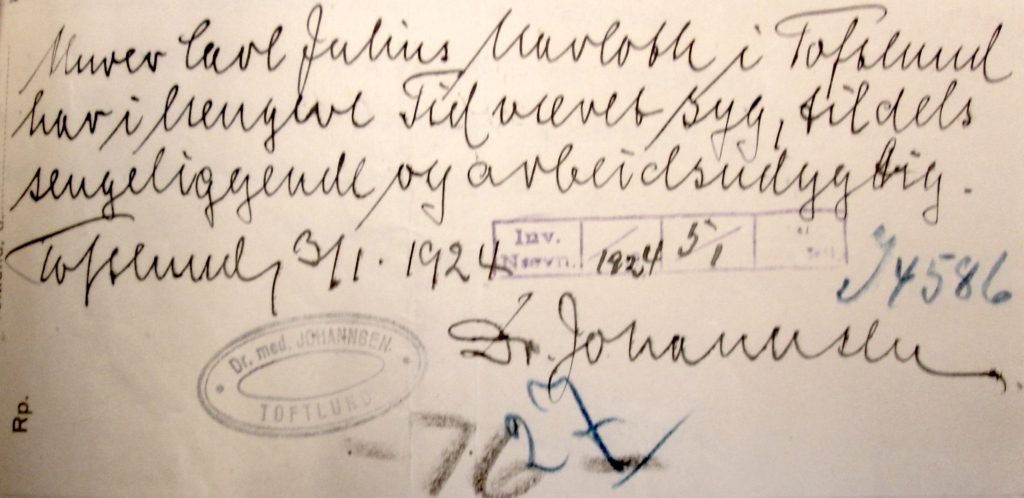 Murer Carl Julius Marloth i Toftlund
har i længere Tid været syg, tildels
sengeliggende og arbeidsudygtig.
Toftlund, 3/1. 1924
Inv.
Nævn.
1924 5/1
J 4586
Dr. Johannsen
Dr. med. JOHANNSEN.
TOFTLUND
27
-76-
Rp.